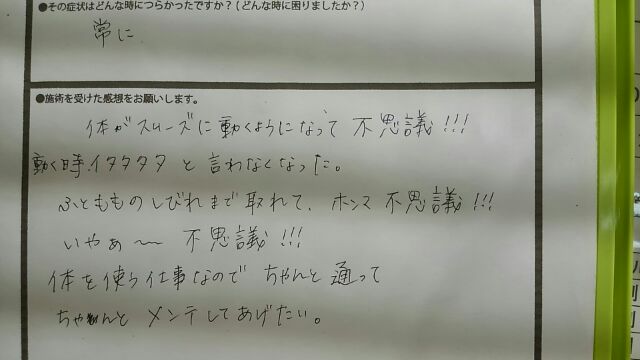 ●その症状はどんな時につらかったですか？(どんな時に困りましたか？)
常に
●施術を受けた感想をお願いします。
体がスムーズに動くようになって 不思議!!!
動く時イタタタタ と 言わなくなった。
ふともものしびれまで取れて、ホンマ 不思議!!!
いやぁ〜 不思議!!!
体を使う仕事なので ちゃんと通って
ちゃんと メンテしてあげたい。